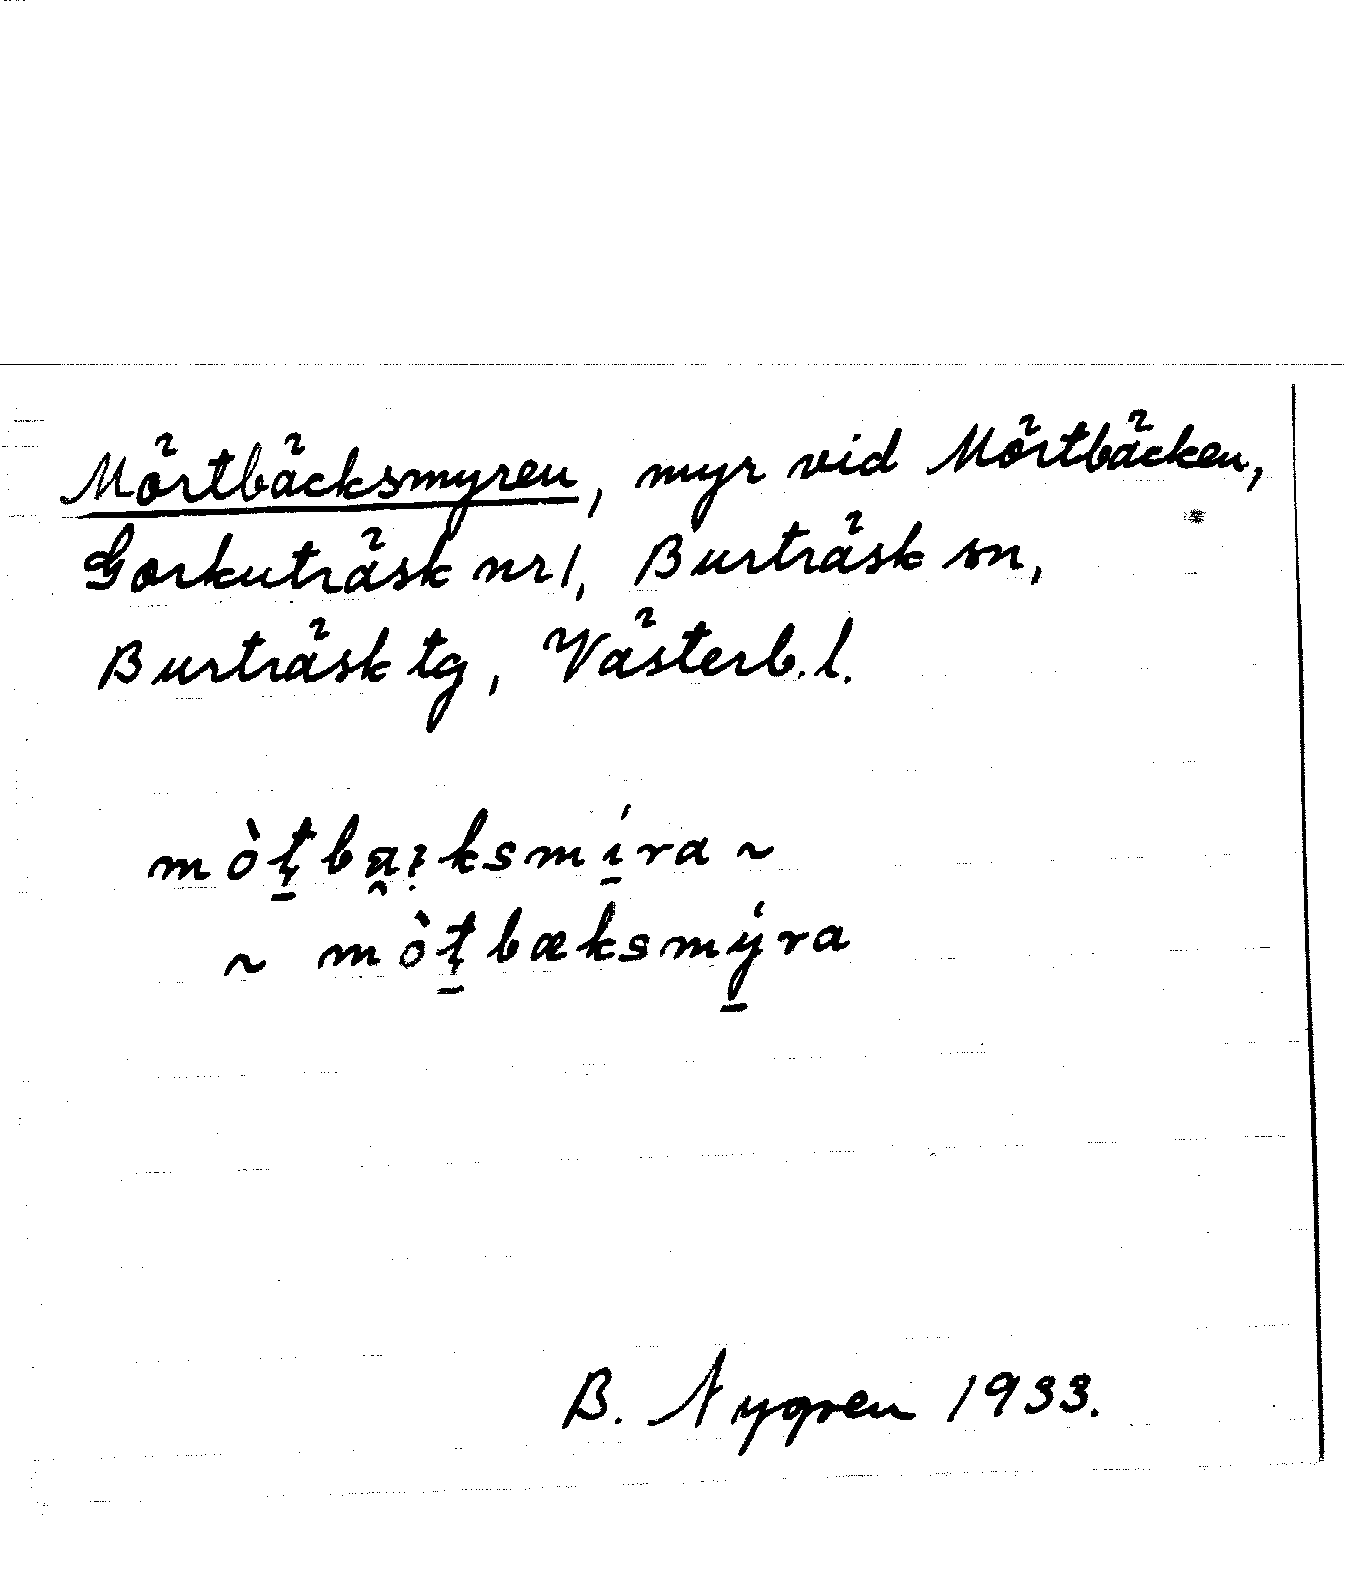 Mörtbäcksmyren, myr vid Mörtbäcken,
Gorkuträsk nr 1, Burträsk sn,
Burträsk tg, Västerb. l.
~ mòṯbæksmý̱ra
B. Nygren 1933.